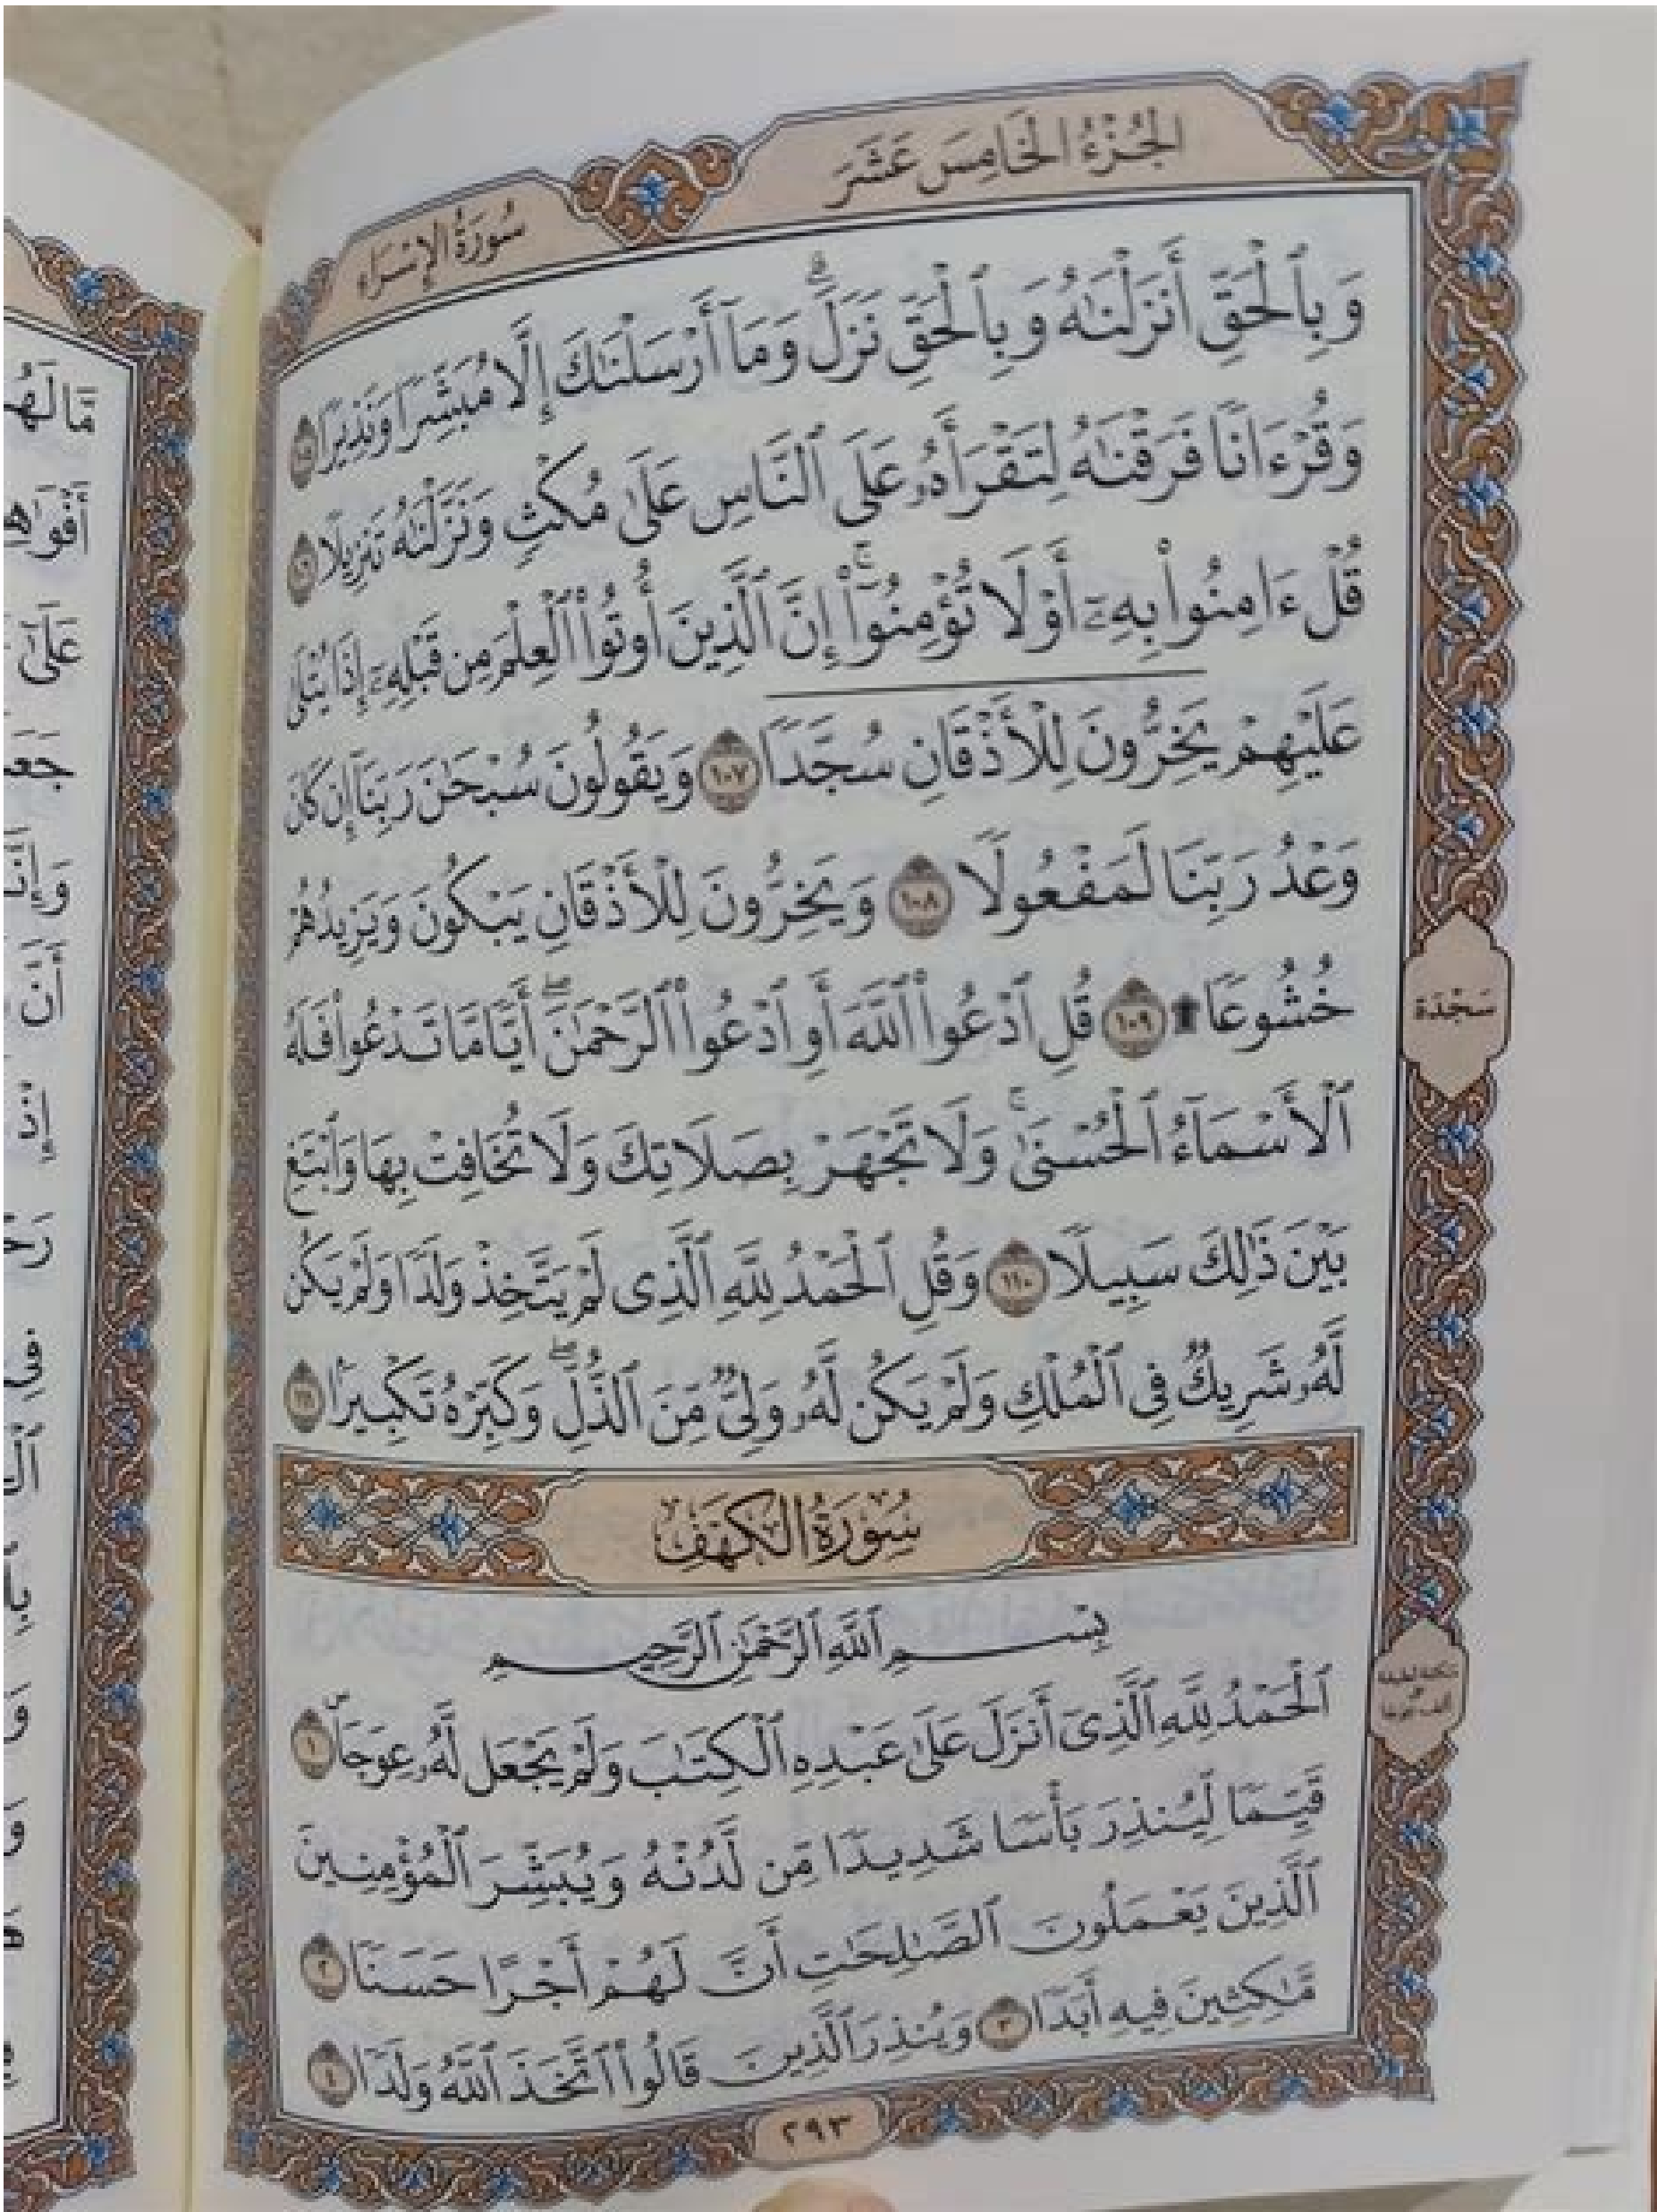 الجُزْءُ الخَامِسَ عَشَرَ
سُورَةُ الإِسْرَاءِ
وَبِٱلْحَقِّ أَنزَلْنَٰهُ وَبِٱلْحَقِّ نَزَلَۗ وَمَآ أَرْسَلْنَٰكَ إِلَّا مُبَشِّرًا وَنَذِيرًا ١٠٥
وَقُرْءَانًا فَرَقْنَٰهُ لِتَقْرَأَهُۥ عَلَى ٱلنَّاسِ عَلَىٰ مُكْثٍ وَنَزَّلْنَٰهُ تَنزِيلًا ١٠٦
قُلْ ءَامِنُوا۟ بِهِۦٓ أَوْ لَا تُؤْمِنُوٓا۟ۚ إِنَّ ٱلَّذِينَ أُوتُوا۟ ٱلْعِلْمَ مِن قَبْلِهِۦٓ إِذَا يُتْلَىٰ
عَلَيْهِمْ يَخِرُّونَ لِلْأَذْقَانِ سُجَّدًا ١٠٧ وَيَقُولُونَ سُبْحَٰنَ رَبِّنَآ إِن كَانَ
وَعْدُ رَبِّنَا لَمَفْعُولًا ١٠٨ وَيَخِرُّونَ لِلْأَذْقَانِ يَبْكُونَ وَيَزِيدُهُمْ
خُشُوعًا ۩ ١٠٩ قُلِ ٱدْعُوا۟ ٱللَّهَ أَوِ ٱدْعُوا۟ ٱلرَّحْمَٰنَۖ أَيًّا مَّا تَدْعُوا۟ فَلَهُ
ٱلْأَسْمَآءُ ٱلْحُسْنَىٰۚ وَلَا تَجْهَرْ بِصَلَاتِكَ وَلَا تُخَافِتْ بِهَا وَٱبْتَغِ
بَيْنَ ذَٰلِكَ سَبِيلًا ١١٠ وَقُلِ ٱلْحَمْدُ لِلَّهِ ٱلَّذِى لَمْ يَتَّخِذْ وَلَدًا وَلَمْ يَكُن
لَّهُۥ شَرِيكٌ فِى ٱلْمُلْكِ وَلَمْ يَكُن لَّهُۥ وَلِىٌّ مِّنَ ٱلذُّلِّۖ وَكَبِّرْهُ تَكْبِيرًۢا ١١١
سُورَةُ الكَهْفِ
بِسْمِ ٱللَّهِ ٱلرَّحْمَٰنِ ٱلرَّحِيمِ
ٱلْحَمْدُ لِلَّهِ ٱلَّذِىٓ أَنزَلَ عَلَىٰ عَبْدِهِ ٱلْكِتَٰبَ وَلَمْ يَجْعَل لَّهُۥ عِوَجَاۜ ١
قَيِّمًا لِّيُنذِرَ بَأْسًا شَدِيدًا مِّن لَّدُنْهُ وَيُبَشِّرَ ٱلْمُؤْمِنِينَ
ٱلَّذِينَ يَعْمَلُونَ ٱلصَّٰلِحَٰتِ أَنَّ لَهُمْ أَجْرًا حَسَنًا ٢
مَّٰكِثِينَ فِيهِ أَبَدًا ٣ وَيُنذِرَ ٱلَّذِينَ قَالُوا۟ ٱتَّخَذَ ٱللَّهُ وَلَدًا ٤
٢٩٣
سَجْدَة
مَّا لَهُم
عَلَىٰ